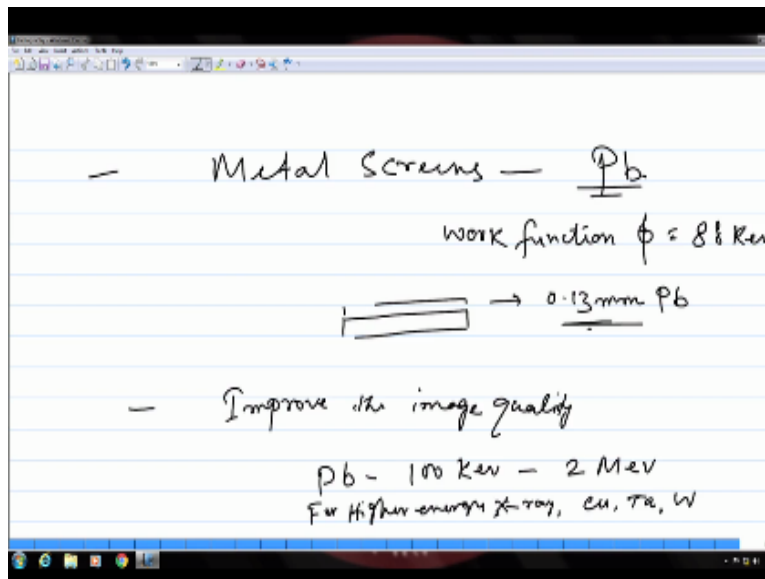 — Metal Screens — Pb
Work function ϕ = 88 Kev
→ 0.13mm Pb
— Improve the image quality
Pb - 100 Kev - 2 Mev
For Higher energy X-ray, Cu, Ta, W